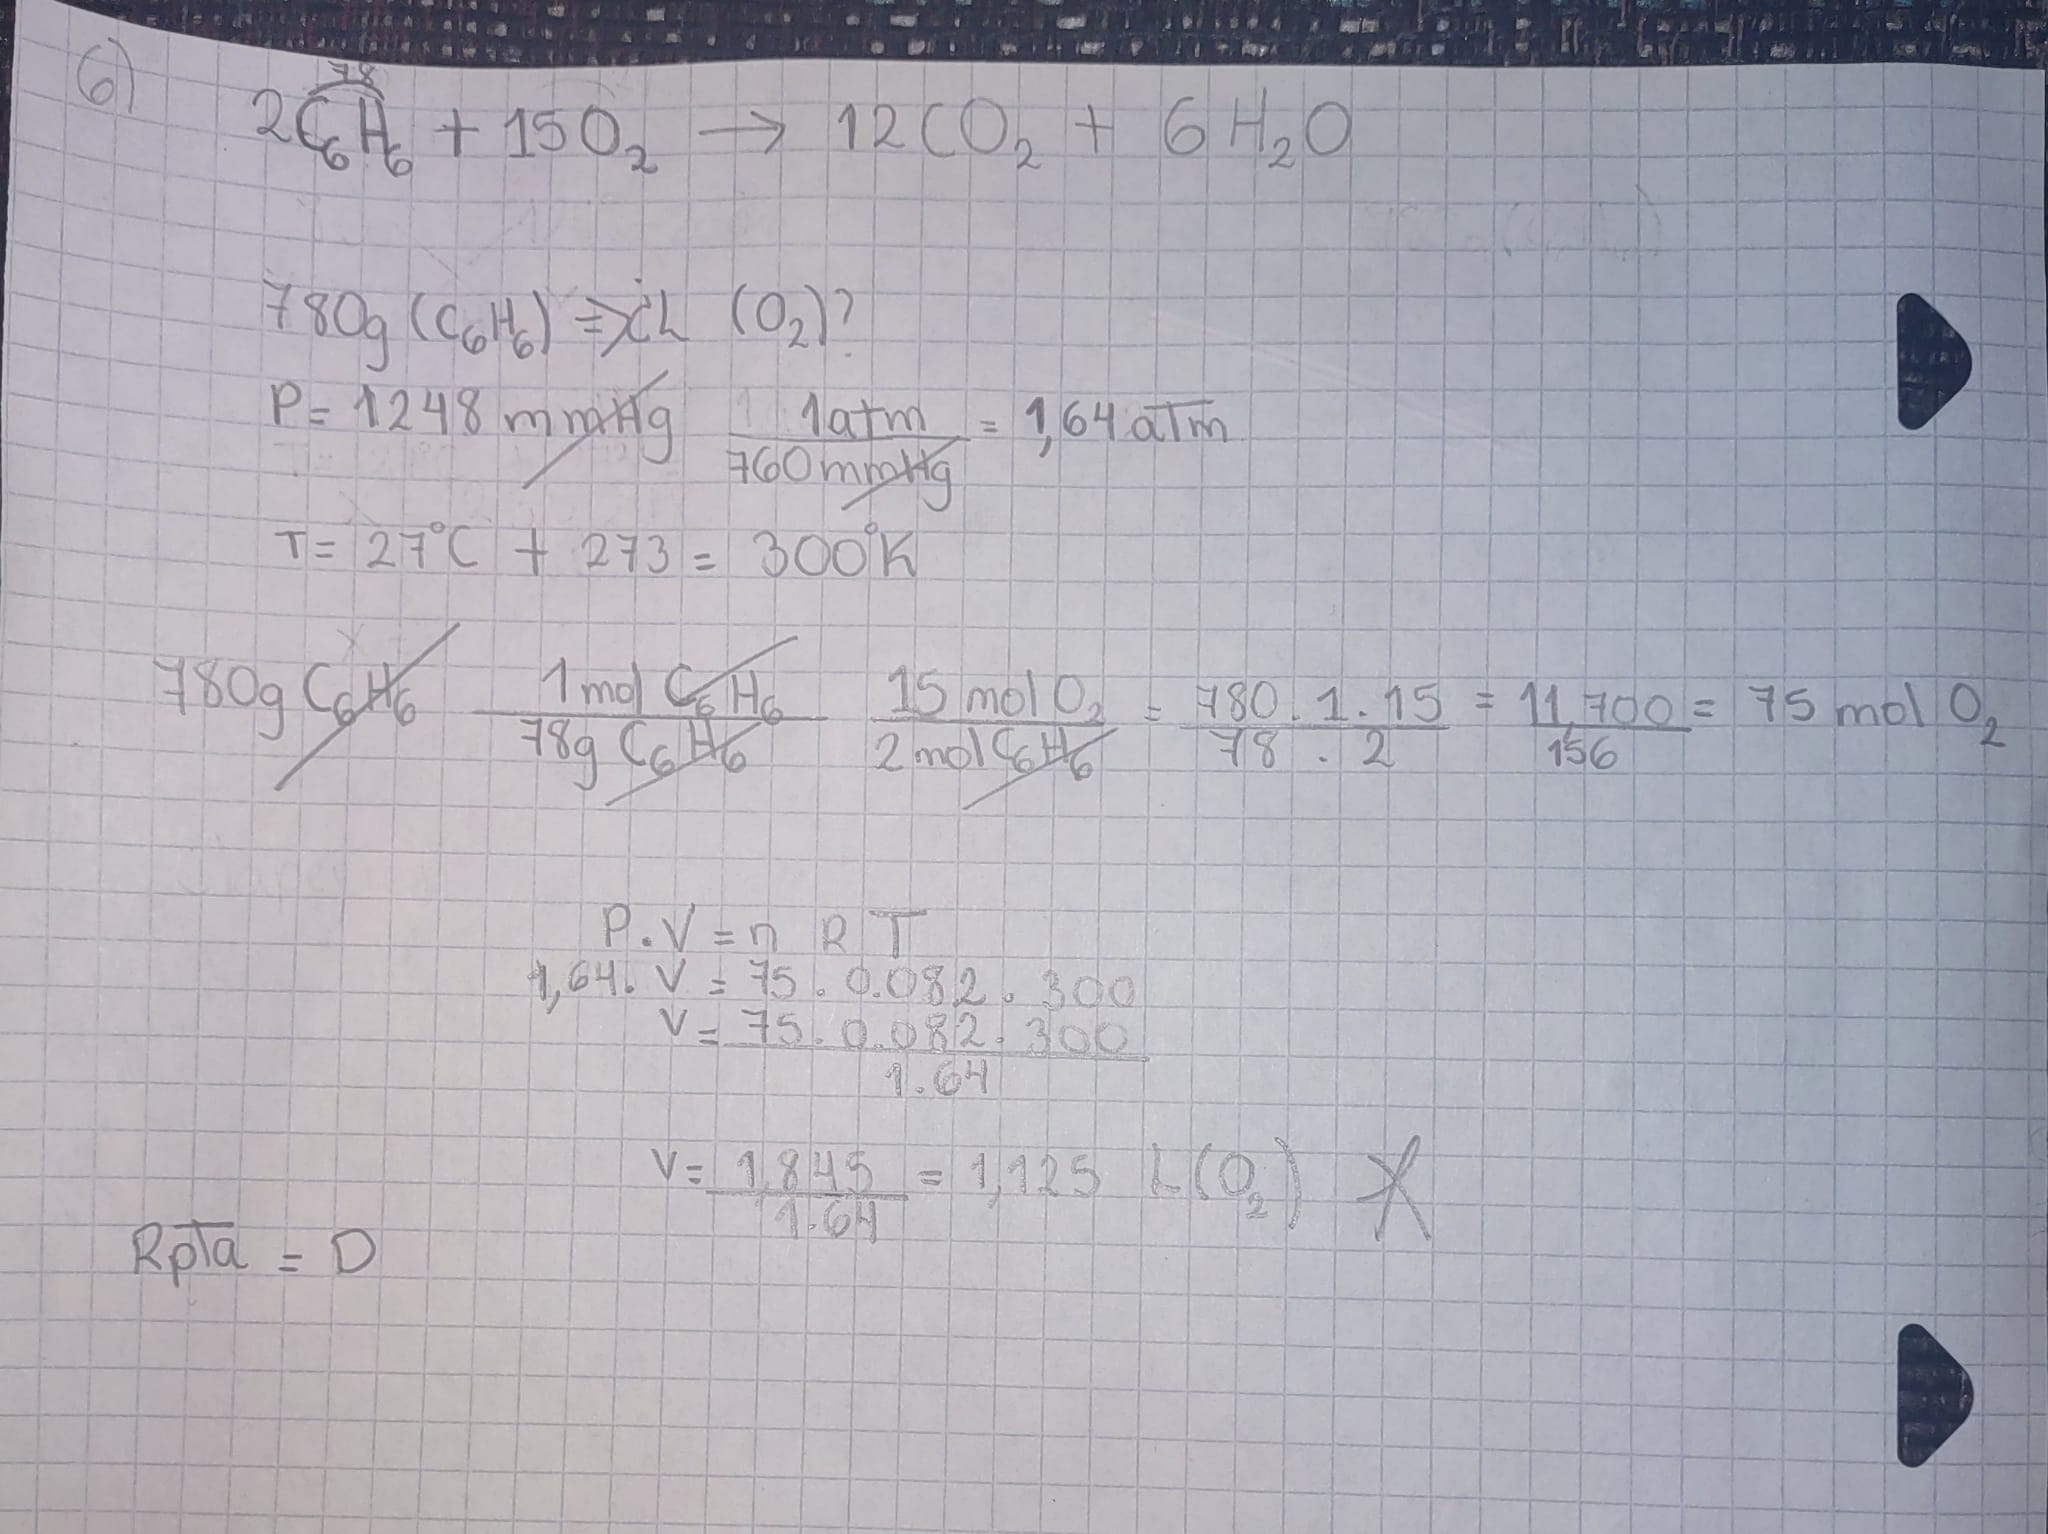 6)
78
2C₆H₆ + 15O₂ → 12CO₂ + 6H₂O
780g (C₆H₆) => ¿L (O₂)?
P = 1248 mmHg 1atm/760mmHg = 1,64 aTm
T = 27°C + 273 = 300°K
780g C₆H₆ 1 mol C₆H₆/78g C₆H₆ 15 mol O₂/2 mol C₆H₆ = 780.1.15/78.2 = 11,700/156 = 75 mol O₂
P.V = n R T
1,64. V = 75. 0.082. 300
V = 75. 0.082. 300/1.64
V = 1,845/1.64 = 1,125 L (O₂)
Rpta = D